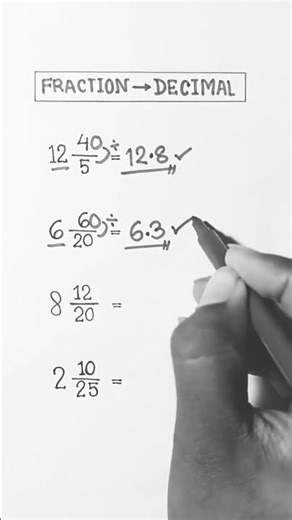 FRACTION → DECIMAL
12 40/5 ÷ = 12.8 ✓
6 60/20 ÷ = 6.3 ✓
8 12/20 =
2 10/25 =